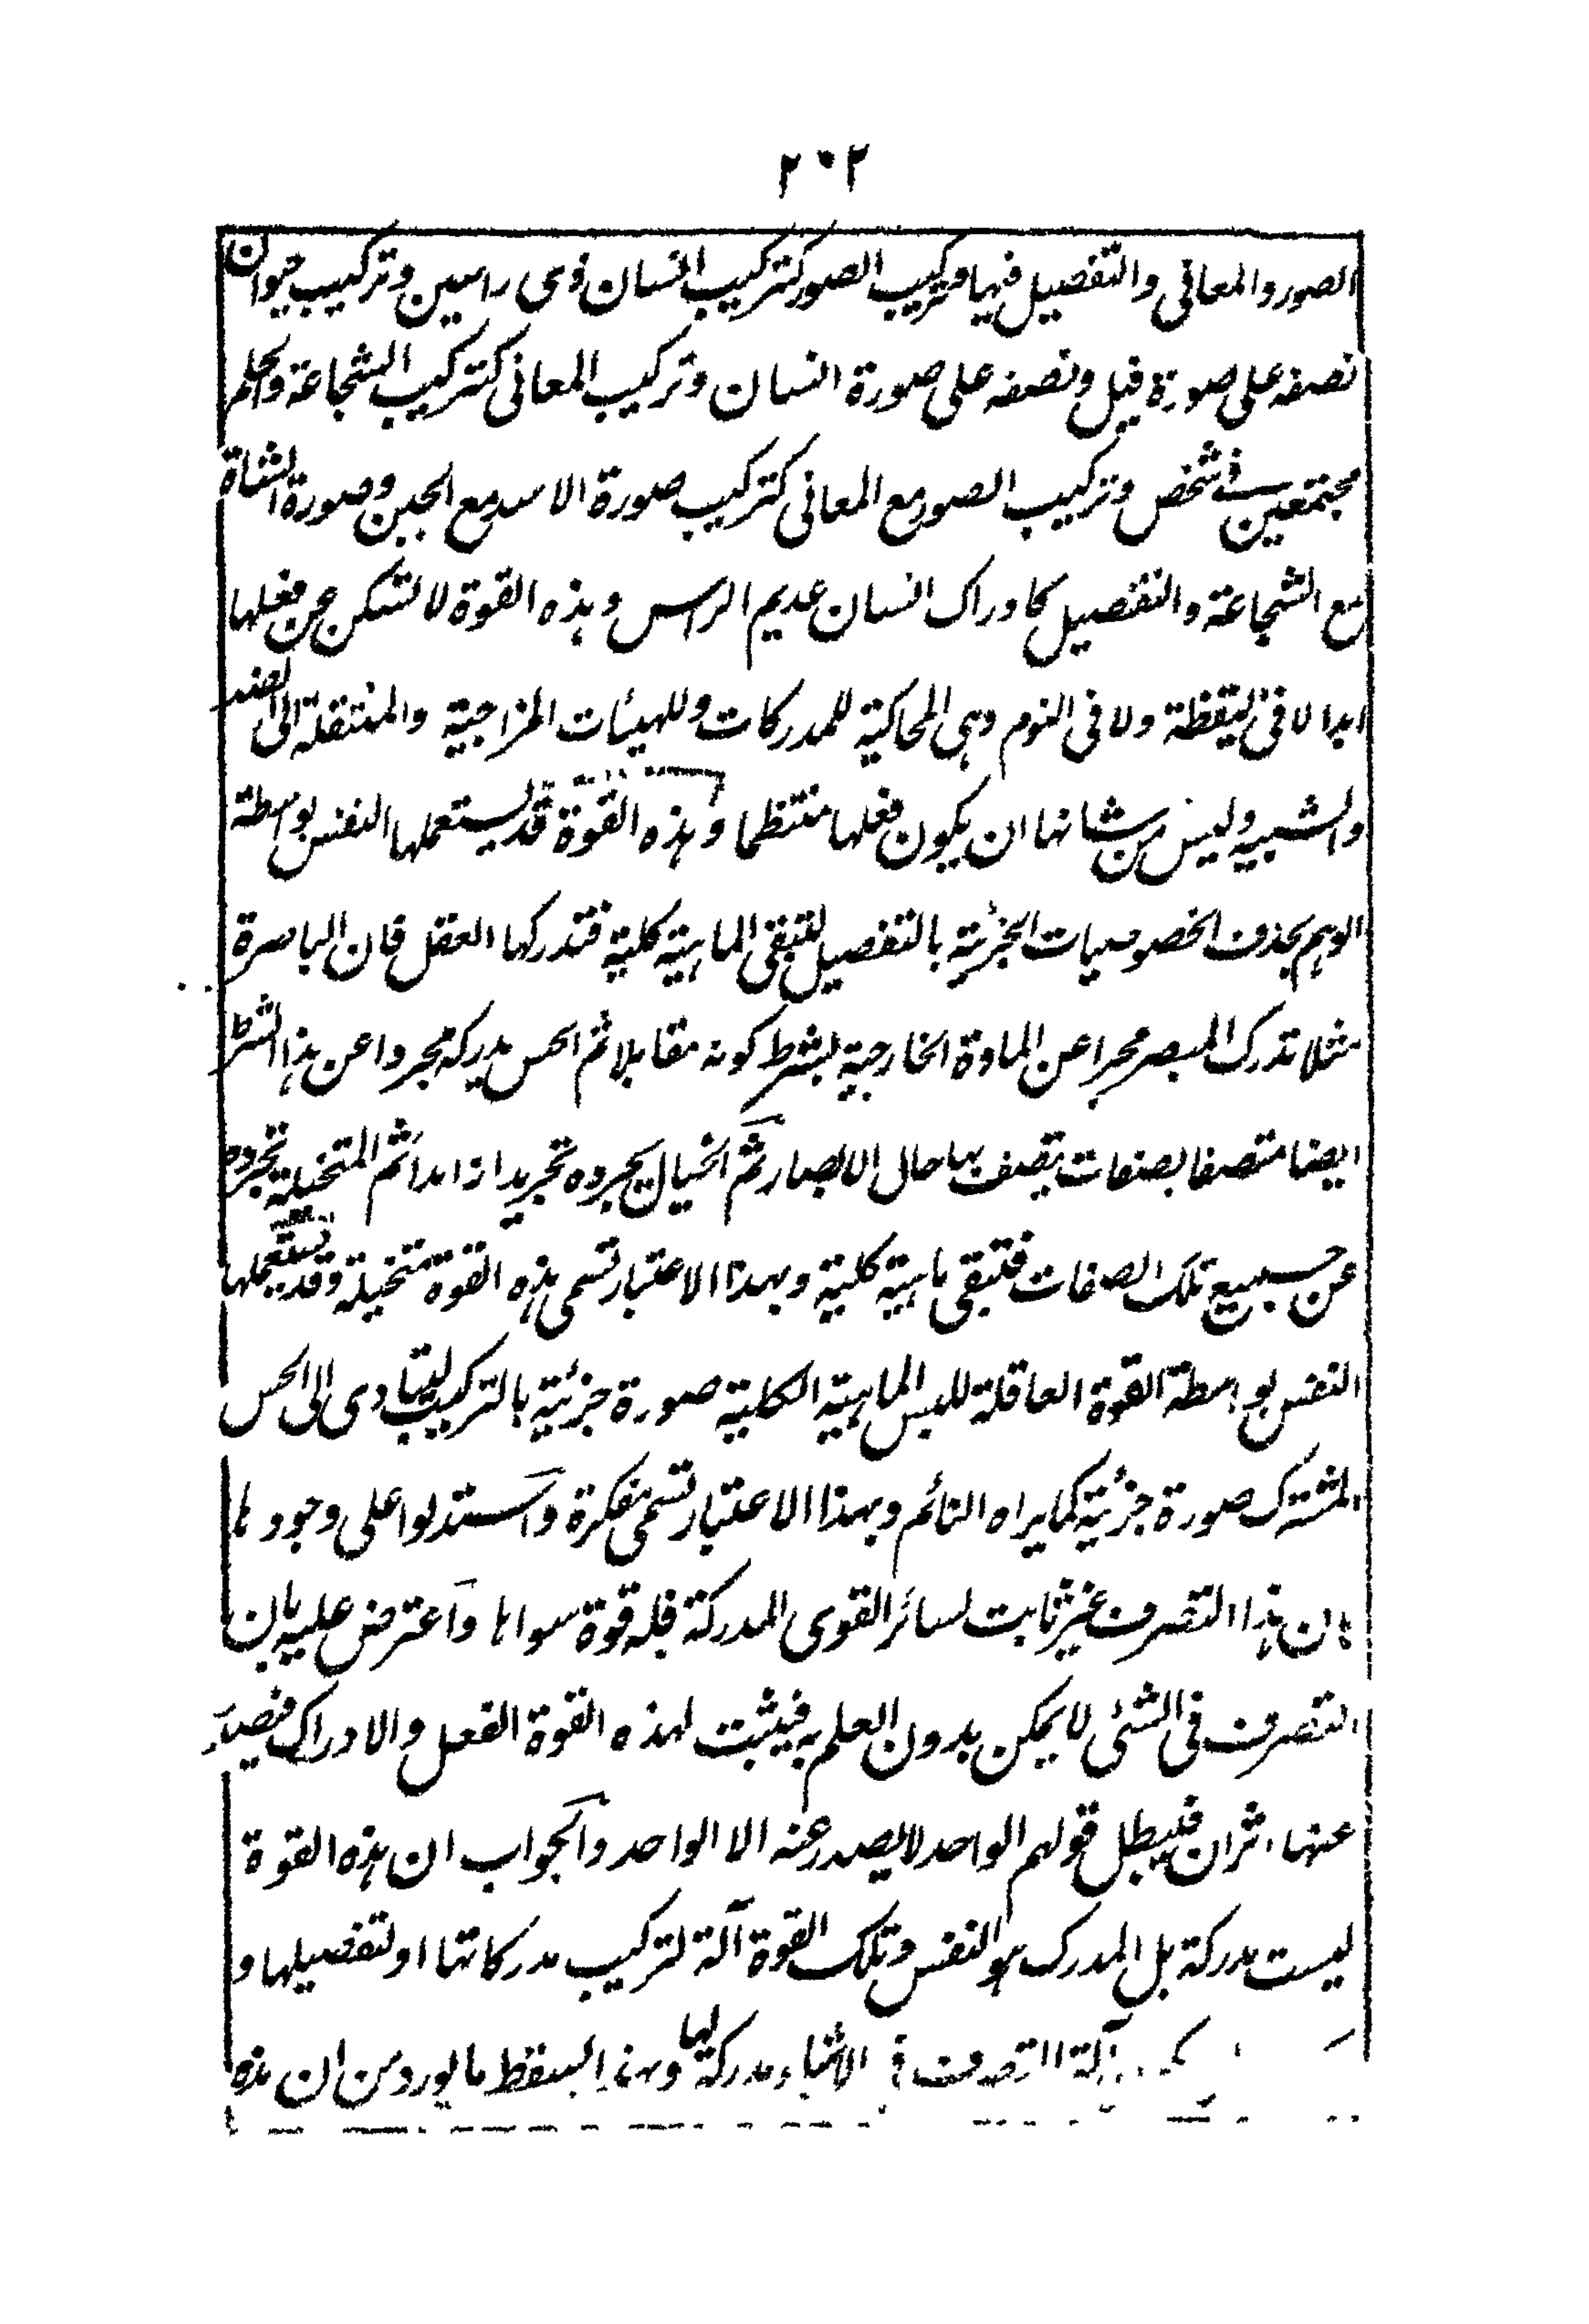 ٢٠٢
الصور والمعانى والتفصيل فيها وتركيب الصور كتركيب انسان ذى راسين وتركيب حيوان
نصفه على صورة فيل ونصفه على صورة انسان وتركيب المعانى كتركيب الشجاعة والحلم
مجتمعين فى شخص وتركيب الصور مع المعانى كتركيب صورة الاسد مع الجبن وصورة الشاة
مع الشجاعة والتفصيل كادراك انسان عديم الراس وهذه القوة لا تسكن عن فعلها
ابدا لا فى اليقظة ولا فى النوم وهى المحاكية للمدركات وللهيئات المزاجية والمنتقلة الى الضد
والشبيه وليس من شانها ان يكون فعلها منتظما وهذه القوة قد يستعملها النفس بواسطة
الوهم بحذف الخصوصيات الجزئية بالتفصيل لتبقى الماهية كلية فتدركها العقل فان الباصرة
مثلا تدرك المبصر مجردا عن المادة الخارجية بشرط كونه مقابلا ثم الحس يدركه مجردا عن هذا الشرط
ايضا متصفا بصفات يتصف بها حال الابصار ثم الخيال يجرده تجريدا زائدا ثم المتخيلة تجرده
عن جميع تلك الصفات فتبقى ماهية كلية وبهذا الاعتبار تسمى هذه القوة متخيلة وقد يستعملها
النفس بواسطة القوة العاقلة للبس الماهية الكلية صورة جزئية بالتركيب ليتادى الى الحس
المشترك صورة جزئية كما يراه النائم وبهذا الاعتبار تسمى مفكرة واستدلوا على وجودها
بان هذا التصرف غير ثابت لسائر القوى المدركة فله قوة سواها واعترض عليه بان
التصرف فى الشئى لا يمكن بدون العلم به فيثبت لهذه القوة الفعل والادراك فيصدر
عنها اثران فيبطل قولهم الواحد لا يصدر عنه الا الواحد والجواب ان هذه القوة
ليست مدركة بل المدرك هو النفس وتلك القوة آلة لتركيب مدركاتها او لتفصيلها و
آلة التصرف فى الاشياء مدركة لها وبهذا يسقط ما يورد من ان هذه